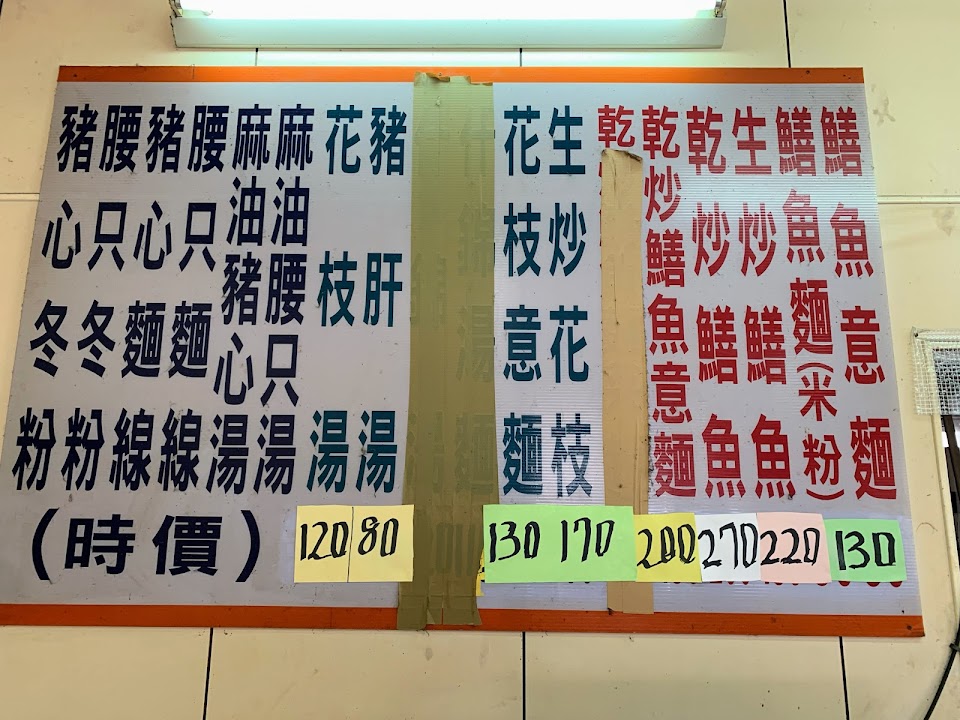 鱔魚意麵
鱔魚麵(米粉)
130
生炒鱔魚
220
乾炒鱔魚
270
乾炒鱔魚意麵
200
乾
生炒花枝
170
花枝意麵
130
豬肝湯
80
花枝湯
120
麻油腰只湯
麻油豬心湯
腰只麵線
豬心麵線
腰只冬粉
豬心冬粉
(時價)